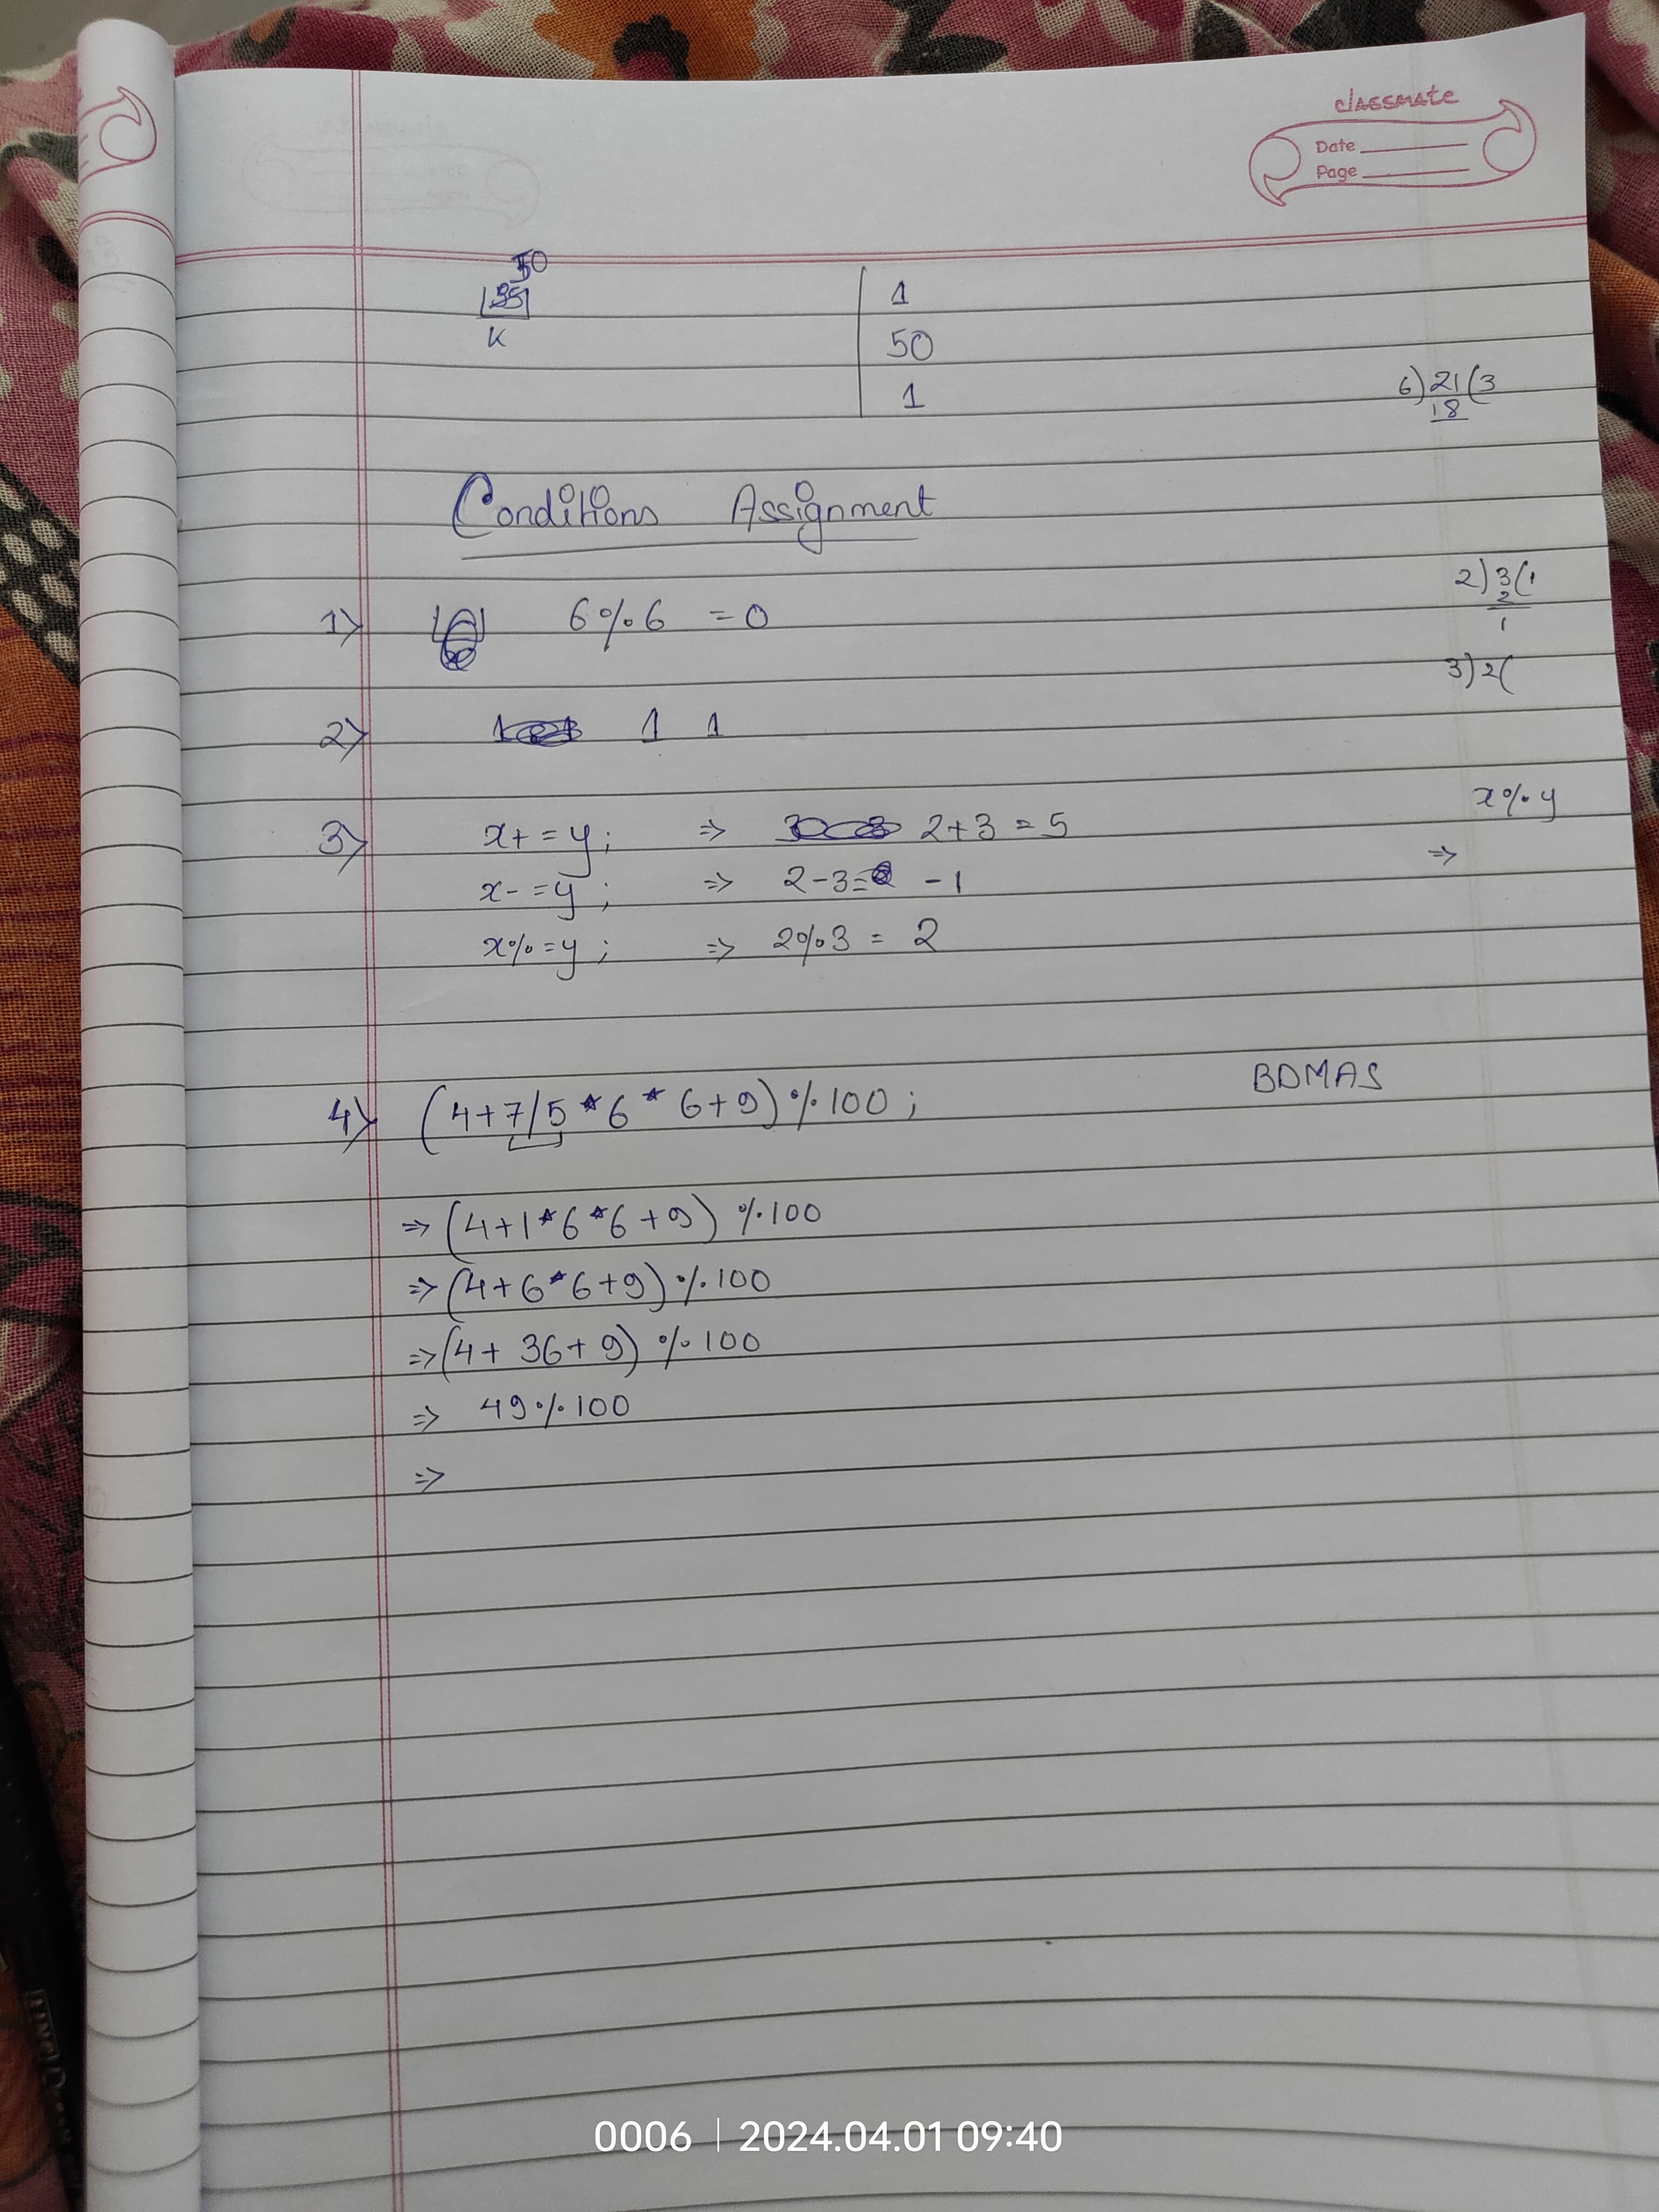 classmate
Date
Page
50
35
K
1
50
1
6)21(3
18
Conditions Assignment
2)3(1
2
1
1) 6%6 = 0
3)2(
2) 1 1
x%y
3) x+=y; => 2+3=5
=>
x-=y; => 2-3= -1
x%=y; => 2%3 = 2
BDMAS
4) (4+7/5*6*6+9)%100;
=> (4+1*6*6+9) %100
=> (4+6*6+9)%100
=> (4+36+9) %100
=> 49%100
=>
0006 | 2024.04.01 09:40